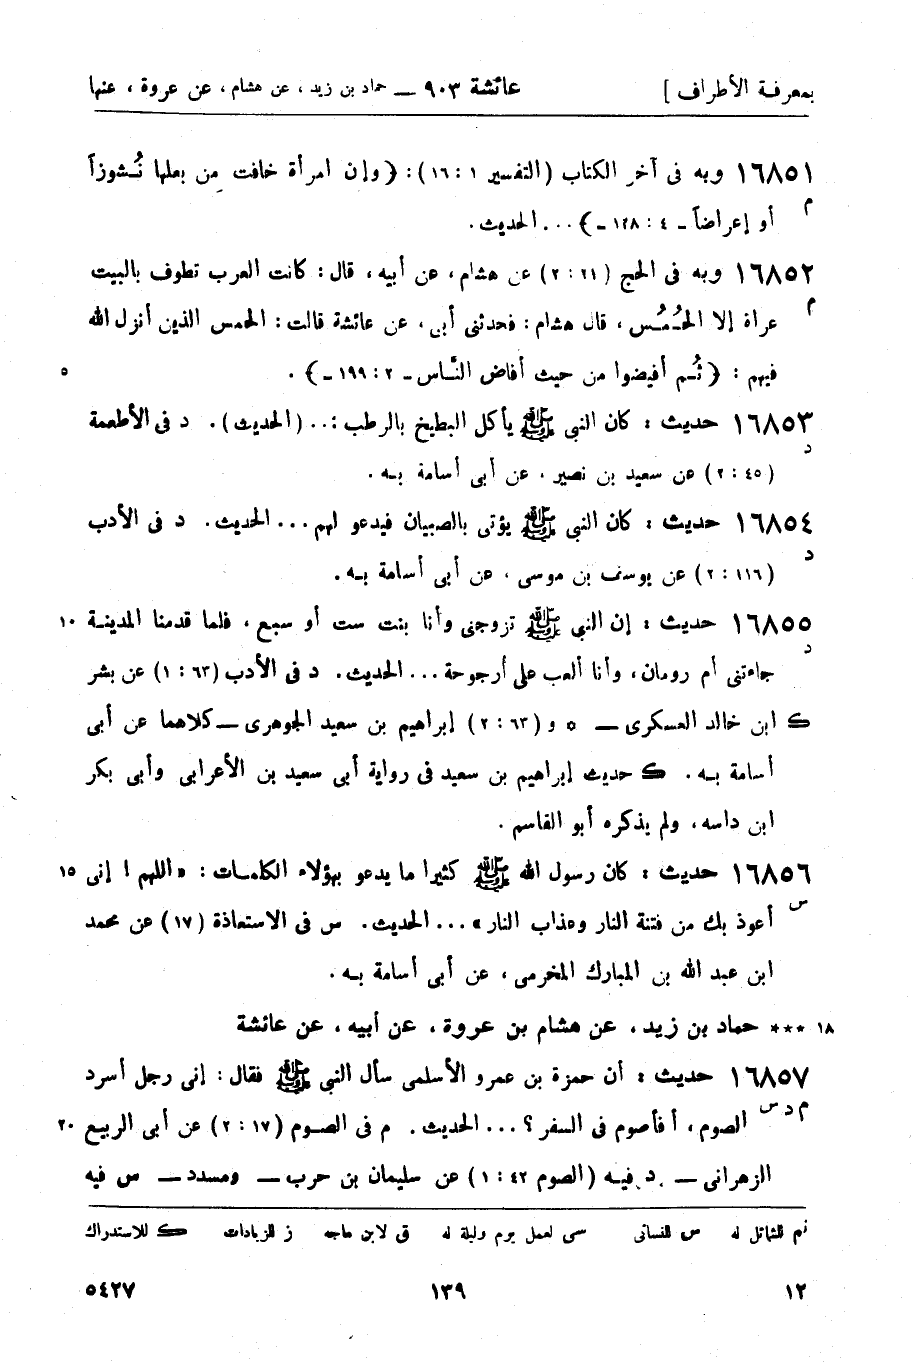 بمعرفة الأطراف ] عائشة ٩٠٣ — حماد بن زيد، عن هشام، عن عروة، عنها
١٦٨٥١ وبه فى آخر الكتاب (التفسير ١ : ١٦): ﴿ وإن امرأة خافت من بعلها نُـشوزاً
م
أو إعراضاً ـ ٤ : ١٢٨ ـ﴾ ... الحديث.
١٦٨٥٢ وبه فى الحج (٢١ : ٢) عن هشام، عن أبيه، قال: كانت العرب تطوف بالبيت
م
عراة إلا الحُـمْـس، قال هشام: فحدثنى أبى، عن عائشة قالت: الحمس الذين أنزل الله
فيهم: ﴿ ثُـم أفيضوا من حيث أفاض النَّاس ـ ٢ : ١٩٩ ـ﴾ . ٥
١٦٨٥٣ حديث: كان النبى ﷺ يأكل البطيخ بالرطب:.. (الحديث). د فى الأطعمة
د
(٤٥ : ٢) عن سعيد بن نصير، عن أبى أسامة بـه.
١٦٨٥٤ حديث: كان النبى ﷺ يؤتى بالصبيان فيدعو لهم ... الحديث. د فى الأدب
د
(١١٦ : ٢) عن يوسف بن موسى، عن أبى أسامة بـه.
١٦٨٥٥ حديث: إن النبي ﷺ تزوجنى وأنا بنت ست أو سبع، فلما قدمنا المدينـة ١٠
د
جاءتنى أم رومان، وأنا ألعب على أرجوحة ... الحديث. د فى الأدب (٦٣ : ١) عن بشر
ك ابن خالد العسكرى — ٥ و (٦٣ : ٢) إبراهيم بن سعيد الجوهرى — كلاهما عن أبى
أسامة بـه. ك حديث إبراهيم بن سعيد فى رواية أبى سعيد بن الأعرابى وأبى بكر
ابن داسه، ولم يذكره أبو القاسم.
١٦٨٥٦ حديث: كان رسول الله ﷺ كثيرا ما يدعو بهؤلاء الكلمـات: «اللهم ! إنى ١٥
س
أعوذ بك من فتنة النار وعذاب النار» ... الحديث. س فى الاستعاذة (١٧) عن محمد
ابن عبد الله بن المبارك المخرمى، عن أبى أسامة بـه.
١٨ *** حماد بن زيد، عن هشام بن عروة، عن أبيه، عن عائشة
١٦٨٥٧ حديث: أن حمزة بن عمرو الأسلمى سأل النبي ﷺ فقال: إنى رجل أسرد
م د س الصوم، أفأصوم فى السفر؟ ... الحديث. م فى الصـوم (١٧ : ٢) عن أبى الربيع ٢٠
الزهرانى — د فيـه (الصوم ٤٢ : ١) عن سليمان بن حرب — ومسدد — س فيه
تم للشمائل له س للنسائى سى لعمل يوم وليلة له ق لابن ماجه ز للزيادات ك للاستدراك
١٢ ١٣٩ ٥٤٢٧